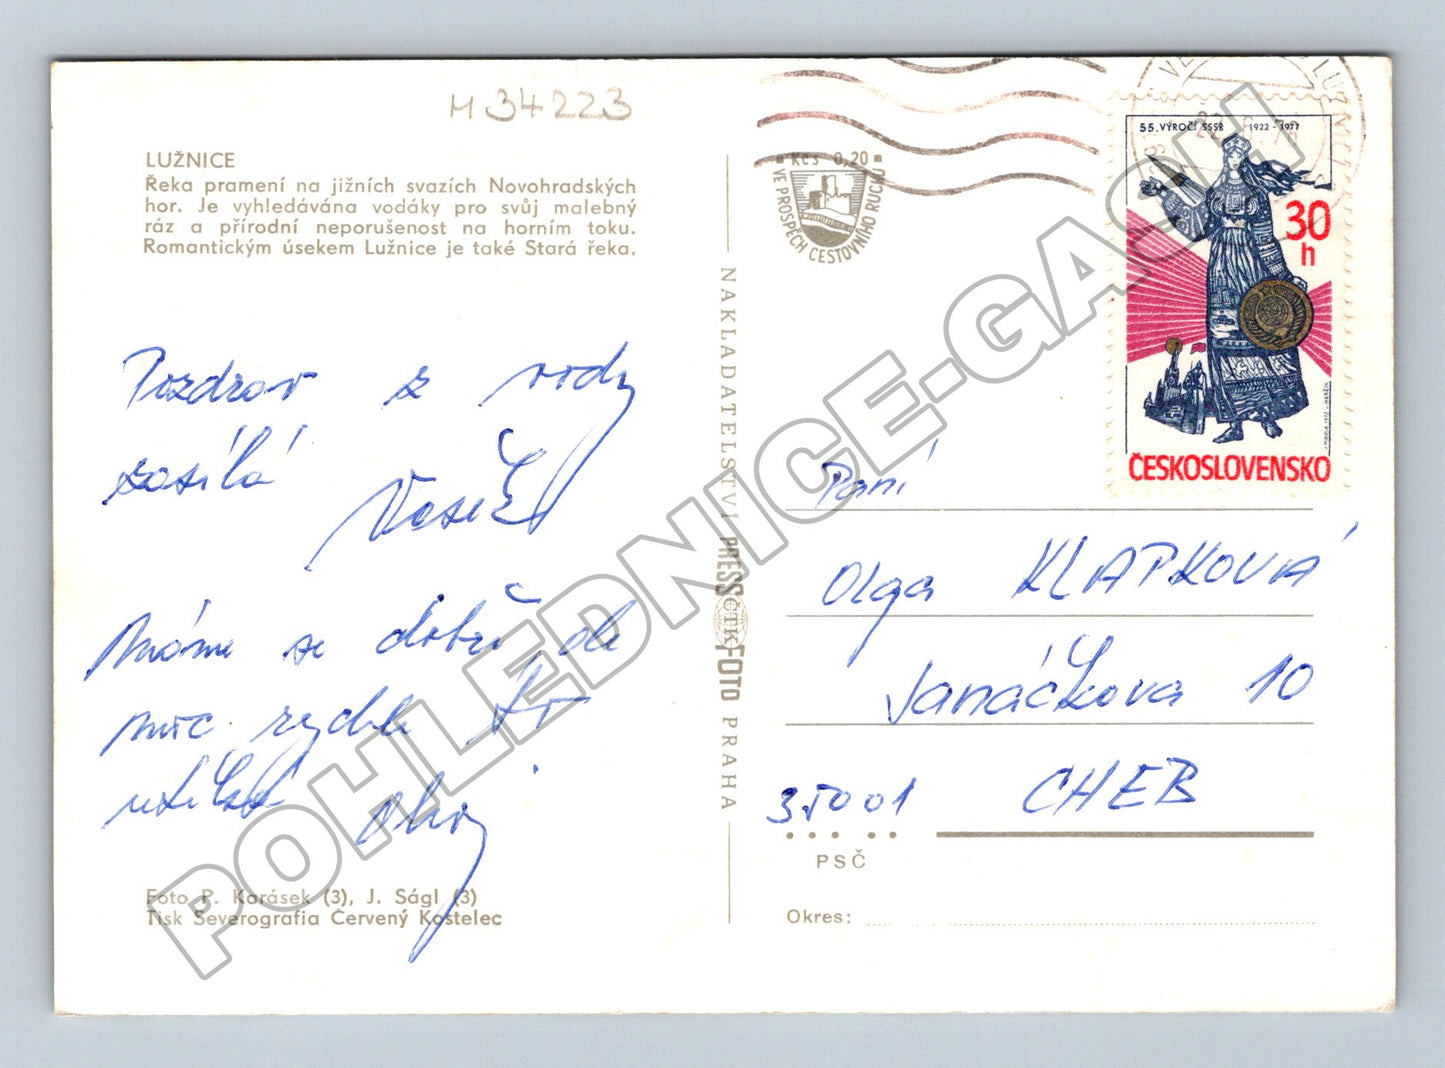 M 34223
LUŽNICE
Řeka pramení na jižních svazích Novohradských
hor. Je vyhledávána vodáky pro svůj malebný
ráz a přírodní neporušenost na horním toku.
Romantickým úsekem Lužnice je také Stará řeka.
Pozdrav z vody
zasílá
Vašek
Máme se dobře, ale
moc rychle to
utíká ahoj
Foto P. Karásek (3), J. Ságl (3)
Tisk Severografia Červený Kostelec
NAKLADATELSTVÍ PRESSFOTO PRAHA
ČTK
Kčs 0,20
VE PROSPĚCH CESTOVNÍHO RUCHU
55. VÝROČÍ SSSR 1922 - 1977
30
h
ČESKOSLOVENSKO
Paní
Olga KLAPKOVÁ
Janáčkova 10
35001 CHEB
PSČ
Okres:
POHLEDNICE-GASH